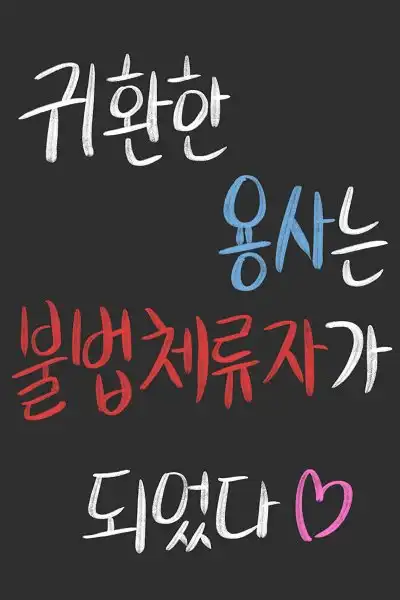 귀환한
용사는
불법체류자가
되었다♡